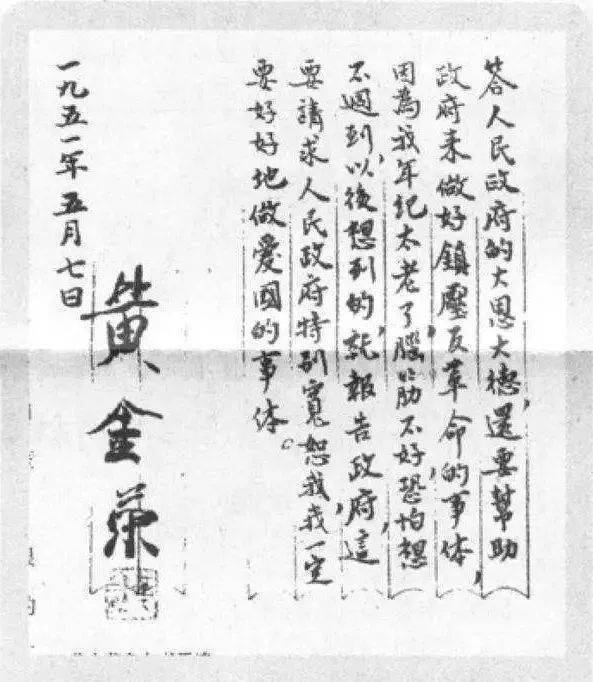 答人民政府的大恩大德，還要幫助
政府來做好鎮壓反革命的事体，
因為我年纪太老了，腦筋不好，恐怕想
不週到，以後想到的就報告政府，這
要請求人民政府特别寬恕我，我一定
要好好地做愛國的事体。
一九五一年五月七日
黄金荣